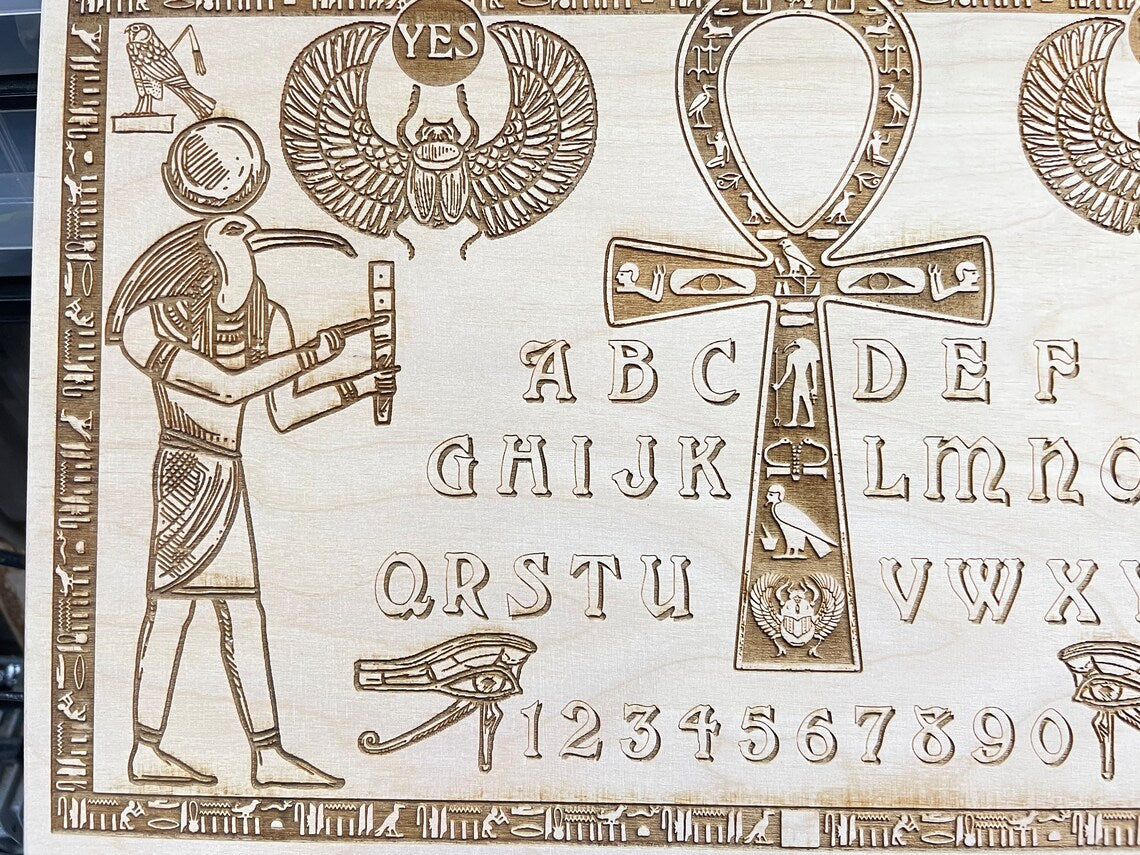 YES
A B C D E F
G H I J K L M N
Q R S T U V W X
1 2 3 4 5 6 7 8 9 0